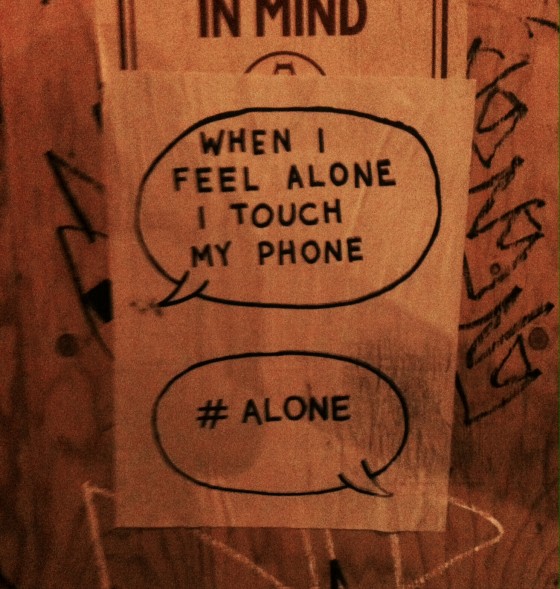 IN MIND
WHEN I
FEEL ALONE
I TOUCH
MY PHONE
# ALONE